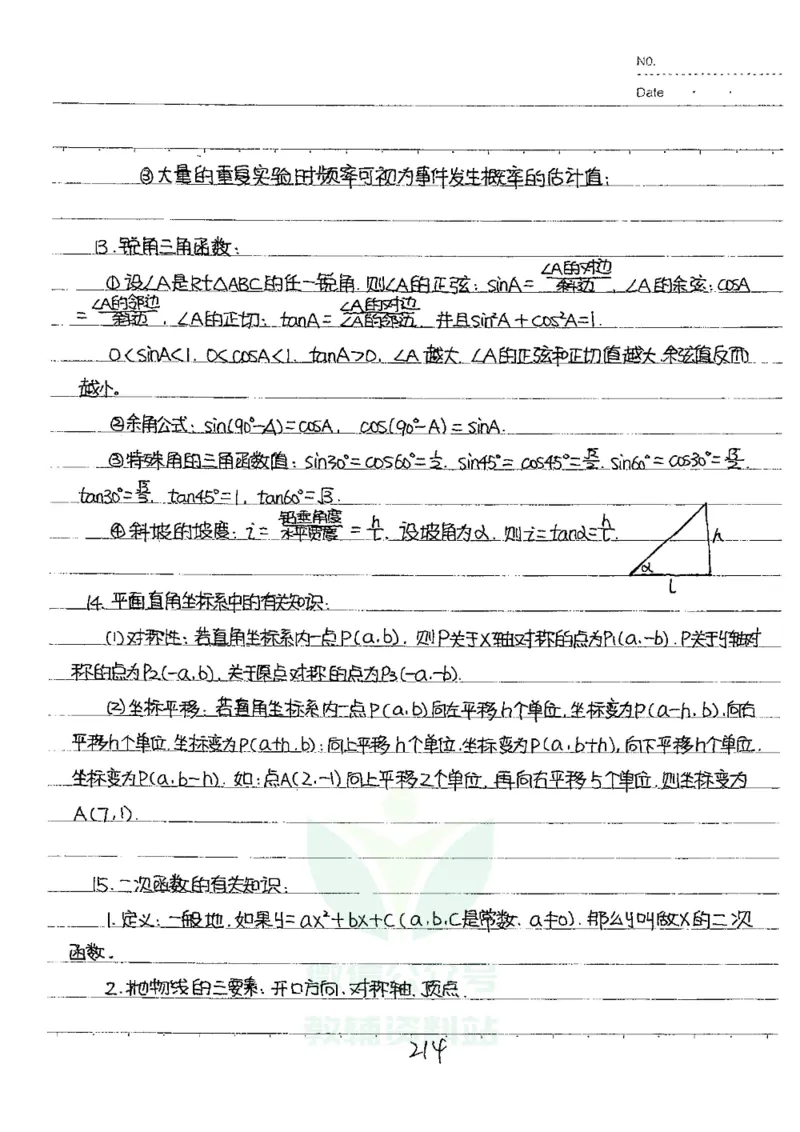 NO.
Date
③大量的重复实验时频率可视为事件发生概率的估计值;
13.锐角三角函数:
①设∠A是Rt△ABC的任一锐角,则∠A的正弦: sinA=∠A的对边/斜边, ∠A的余弦: cosA
=∠A的邻边/斜边, ∠A的正切: tanA=∠A的对边/∠A的邻边, 并且sin²A+cos²A=1.
0<sinA<1, 0<cosA<1, tanA>0, ∠A越大, ∠A的正弦和正切值越大,余弦值反而
越小。
②余角公式: sin(90°-A)=cosA, cos(90°-A)=sinA.
③特殊角的三角函数值: sin30°=cos60°=1/2, sin45°=cos45°=√2/2, sin60°=cos30°=√3/2,
tan30°=√3/3, tan45°=1, tan60°=√3.
④斜坡的坡度: i=铅垂角度/水平宽度=h/l, 设坡角为α,则i=tanα=h/l.
h
α
l
14.平面直角坐标系中的有关知识:
(1)对称性:若直角坐标系内一点P(a,b),则P关于X轴对称的点为P1(a,-b),P关于y轴对
称的点为P2(-a,b),关于原点对称的点为P3(-a,-b).
(2)坐标平移:若直角坐标系内一点P(a,b)向左平移h个单位,坐标变为P(a-h,b),向右
平移h个单位,坐标变为P(a+h,b);向上平移h个单位,坐标变为P(a,b+h),向下平移h个单位,
坐标变为P(a,b-h). 如:点A(2,-1)向上平移2个单位,再向右平移5个单位,则坐标变为
A(7,1).
15.二次函数的有关知识:
1.定义:一般地,如果y=ax²+bx+c(a,b,c是常数,a≠0),那么y叫做X的二次
函数。
2.抛物线的三要素:开口方向、对称轴、顶点.
微信公众号
教辅资料站
214